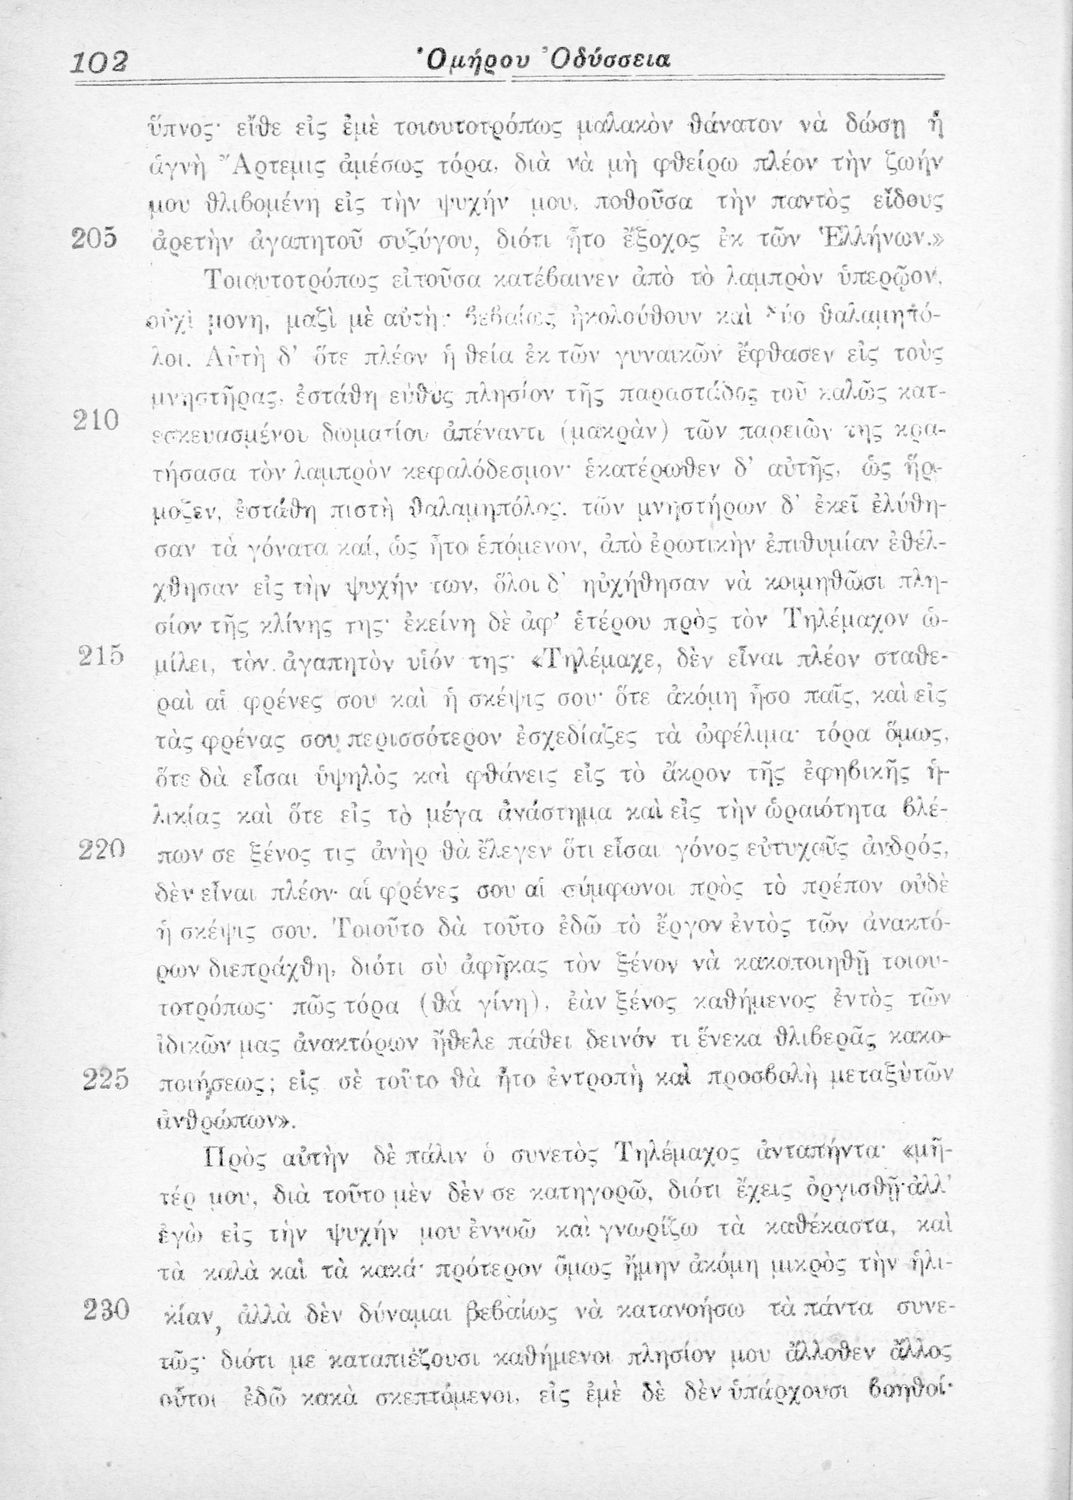 102 Ὁμήρου Ὀδύσσεια
ὕπνος· εἴθε εἰς ἐμὲ τοιουτοτρόπως μαλακὸν θάνατον νὰ δώσῃ ἡ
ἁγνὴ Ἄρτεμις ἀμέσως τόρα, διὰ νὰ μὴ φθείρω πλέον τὴν ζωήν
μου θλιβομένη εἰς τὴν ψυχήν μου, ποθοῦσα τὴν παντὸς εἴδους
205 ἀρετὴν ἀγαπητοῦ συζύγου, διότι ἦτο ἔξοχος ἐκ τῶν Ἑλλήνων.»
Τοιουτοτρόπως εἰποῦσα κατέβαινεν ἀπὸ τὸ λαμπρὸν ὑπερῷον,
οὐχὶ μονη, μαζὶ μὲ αὐτὴν βεβαίως ἠκολούθουν καὶ δύο θαλαμηπό-
λοι. Αὐτὴ δ’ ὅτε πλέον ἡ θεία ἐκ τῶν γυναικῶν ἔφθασεν εἰς τοὺς
μνηστῆρας, ἐστάθη εὐθὺς πλησίον τῆς παραστάδος τοῦ καλῶς κατ-
210 εσκευασμένου δωματίου ἀπέναντι (μακρὰν) τῶν παρειῶν της κρα-
τήσασα τὸν λαμπρὸν κεφαλόδεσμον· ἑκατέρωθεν δ’ αὐτῆς, ὡς ἥρ-
μοζεν, ἐστάθη πιστὴ θαλαμηπόλος. τῶν μνηστήρων δ’ ἐκεῖ ἐλύθη-
σαν τὰ γόνατα καί, ὡς ἦτο ἑπόμενον, ἀπὸ ἐρωτικὴν ἐπιθυμίαν ἐθέλ-
χθησαν εἰς τὴν ψυχήν των, ὅλοι δ’ ηὐχήθησαν νὰ κοιμηθῶσι πλη-
σίον τῆς κλίνης της· ἐκείνη δὲ ἀφ’ ἑτέρου πρὸς τὸν Τηλέμαχον ὡ-
215 μίλει, τὸν ἀγαπητὸν υἱόν της· «Τηλέμαχε, δὲν εἶναι πλέον σταθε-
ραὶ αἱ φρένες σου καὶ ἡ σκέψις σου· ὅτε ἀκόμη ἦσο παῖς, καὶ εἰς
τὰς φρένας σου περισσότερον ἐσχεδίαζες τὰ ὠφέλιμα· τόρα ὅμως,
ὅτε δὰ εἶσαι ὑψηλὸς καὶ φθάνεις εἰς τὸ ἄκρον τῆς ἐφηβικῆς ἡ-
λικίας καὶ ὅτε εἰς τὸ μέγα ἀνάστημα καὶ εἰς τὴν ὡραιότητα βλέ-
220 πων σε ξένος τις ἀνὴρ θὰ ἔλεγεν ὅτι εἶσαι γόνος εὐτυχοῦς ἀνδρός,
δὲν εἶναι πλέον αἱ φρένες σου αἱ σύμφωνοι πρὸς τὸ πρέπον οὐδὲ
ἡ σκέψις σου. Τοιοῦτο δὰ τοῦτο ἐδῶ τὸ ἔργον ἐντὸς τῶν ἀνακτό-
ρων διεπράχθη, διότι σὺ ἀφῆκας τὸν ξένον νὰ κακοποιηθῇ τοιου-
τοτρόπως· πῶς τόρα (θὰ γίνῃ), ἐὰν ξένος καθήμενος ἐντὸς τῶν
ἰδικῶν μας ἀνακτόρων ἤθελε πάθει δεινόν τι ἕνεκα θλιβερᾶς κακο-
225 ποιήσεως; εἰς σὲ τοῦτο θὰ ἦτο ἐντροπὴ καὶ προσβολὴ μεταξὺ τῶν
ἀνθρώπων».
Πρὸς αὐτὴν δὲ πάλιν ὁ συνετὸς Τηλέμαχος ἀνταπήντα· «μῆ-
τέρ μου, διὰ τοῦτο μὲν δὲν σε κατηγορῶ, διότι ἔχεις ὀργισθῆ· ἀλλ’
ἐγὼ εἰς τὴν ψυχήν μου ἐννοῶ καὶ γνωρίζω τὰ καθέκαστα, καὶ
τὰ καλὰ καὶ τὰ κακά· πρότερον ὅμως ἤμην ἀκόμη μικρὸς τὴν ἡλι-
230 κίαν, ἀλλὰ δὲν δύναμαι βεβαίως νὰ κατανοήσω τὰ πάντα συνε-
τῶς· διότι με καταπιέζουσι καθήμενοι πλησίον μου ἄλλοθεν ἄλλος
οὗτοι ἐδῶ κακὰ σκεπτόμενοι, εἰς ἐμὲ δὲ δὲν ὑπάρχουσι βοηθοί·